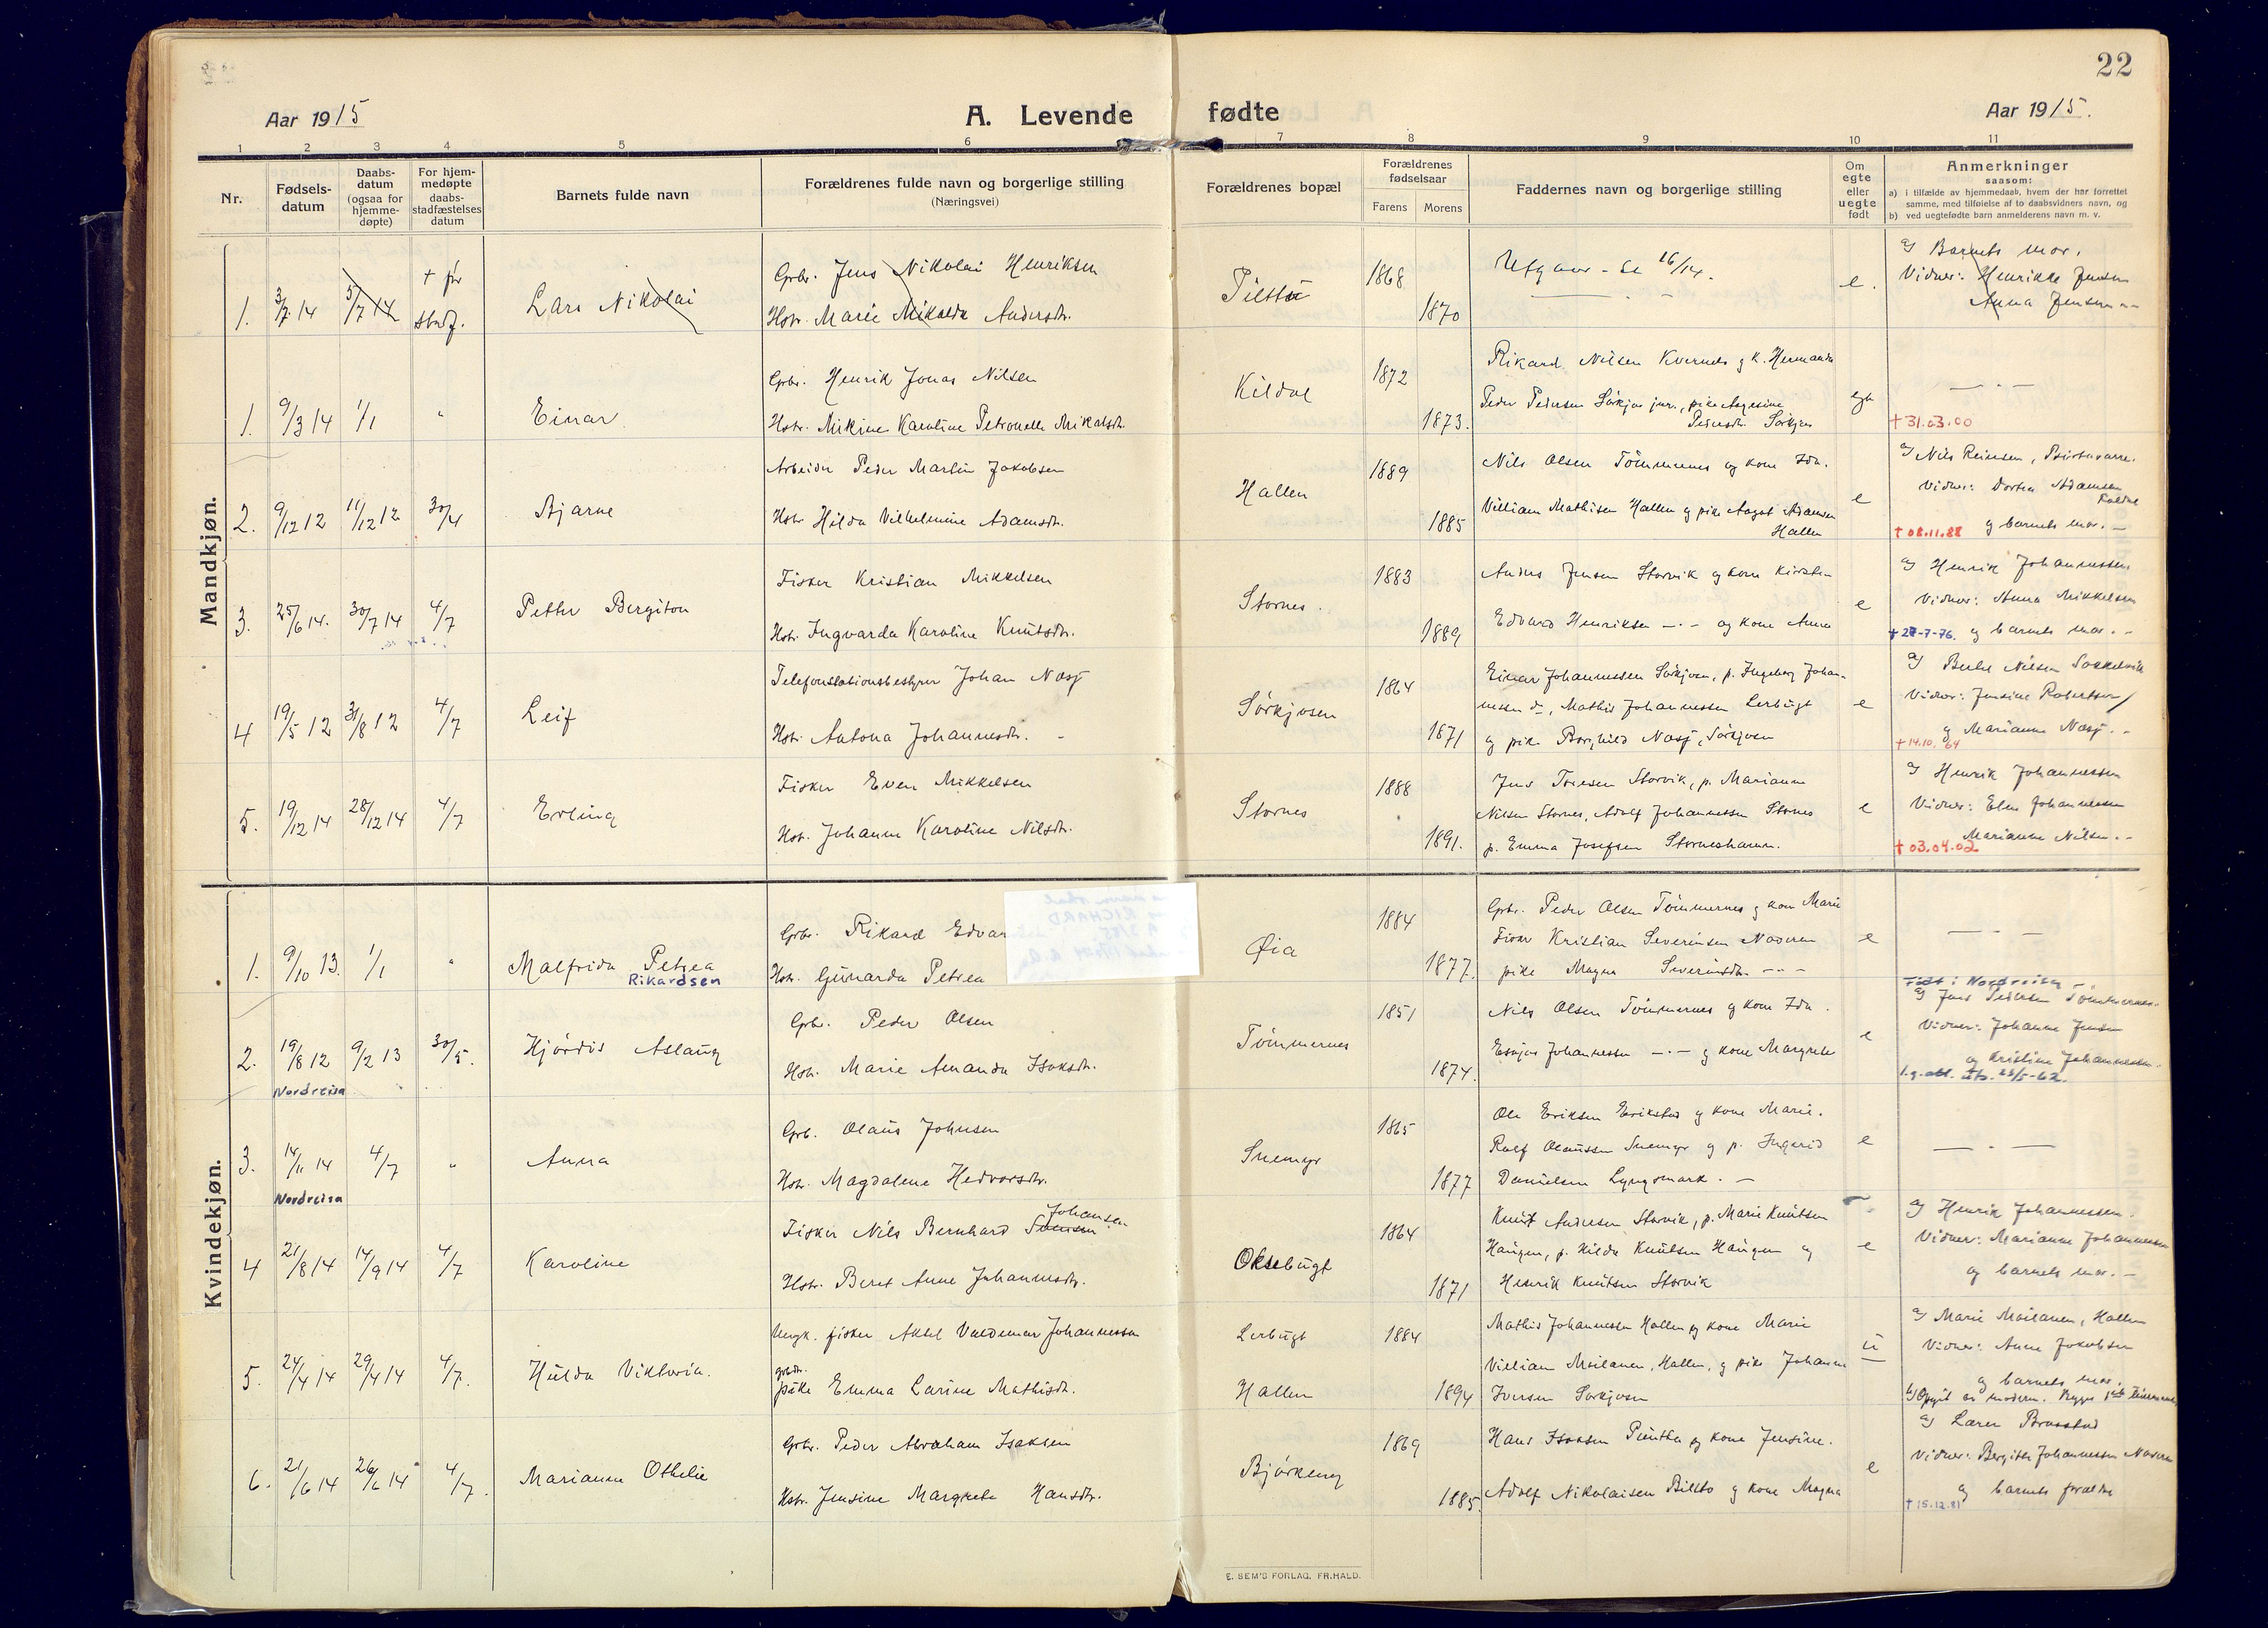 22
Aar 1915
A. Levende
fødte
Aar 1915.
1 2 3 4 5 6 7 8 9 10 11
Nr.
Fødsels-
datum
Daabs-
datum
(ogsaa for
hjemme-
døpte)
For hjem-
medøpte
daabs-
stadfæstelses
datum
Barnets fulde navn
Forældrenes fulde navn og borgerlige stilling
(Næringsvei)
Forældrenes bopæl
Forældrenes
fødselsaar
Farens Morens
Faddernes navn og borgerlige stilling
Om
egte
eller
uegte
født
Anmerkninger
saasom:
a) i tilfælde av hjemmedaab, hvem der har forrettet
samme, med tilføielse af to daabsvidners navn, og
b) ved uegtefødte barn anmelderens navn m. v.
Mandkjøn.
1. 3/7 14 5/7 14 + før stadf. Lars Nikolai
Gbr. Jens Nikolai Henriksen
Hstr. Marie Nikolda Andersdtr.
1868
1870
Utgaar - Se 16/14.
e.
a) Barnets mor.
Vidner: Henrikke Jensen
Anna Jensen
1. 9/3 14 1/1 " Einar
Gbr. Henrik Jonas Nilsen
Hstr. Nikine Karoline Petronelle Mikalsdtr.
Kildal
1872
1873.
Rikard Nilsen Kvernes g k. Hermanda
Peder Pedersen Sörkjos jun., pike Aagesine
Pedersdtr. Sörkjos
egte
— . —
+ 31.03.00
2. 9/12 12 11/12 12 30/4 Bjarne
Arbeider Peder Martin Jakobsen
Hstr. Hilda Vilhelmine Adamsdtr.
Hallen
1889
1885
Nils Olsen Tömmernes og kone Ida.
Villiam Mathisen Hallen g pike Aagot Adamsen
Hallen
e
a) Nils Reiersen,
Vidner: Dortea Adamsen
og barnets mor. —
+ 08.11.88
3. 25/6 14. 30/7 14 4/7 Petter Bergiton
Fisker Kristian Mikkelsen
Hstr. Ingvarda Karoline Knutsdtr.
Stornes.
1883
1889
Anders Jensen Storvik og kone Kirsten
Edvard Henriksen —.— og kone Anna
e
a) Henrik Johannessen
Vidner: Anna Mikkelsen
+ 27-7-76. og barnets mor. -
4 19/5 12 31/8 12 4/7 Leif
Telefonstationsbestyrer Johan Nasj
Hstr. Antona Johannesdtr. -
Sörkjosen
1864
1871
Einar Johannessen Sörkjosen, p. Ingeborg Johan-
nessen do, Mathis Johannessen Lerbugt
og pike Borghild Nasj, Sörkjosen
e
a) Berte Nilsen Sokkelvik
Vidner: Jensine Robertsen
og Marianne Nasj. -
+ 14.10. 64
5. 19/12 14 28/12 14 4/7 Erling
Fisker Even Mikkelsen
Hstr. Johanne Karoline Nilsdtr.
Stornes
1888
1891.
Jens Toresen Storvik, p. Marianne
Nilsen Stornes, Adolf Johannessen Stornes
p. Emma Josefsen Storneshamn.
e
a) Henrik Johannessen
Vidner: Elen Johannessen
Marianne Nilsen. -
+ 03.04.02
Kvindekjøn.
1. 9/10 13. 1/1 " Malfrida Petrea
Rikardsen
Gbr. Rikard Edvar
Hstr. Gunarda Petrea
RICHARD
Øia
1884
1877.
Gbr. Peder Olsen Tömmernes g kone Marie
Fisker Kristian Severinsen Naveren
pike Magna Severinsdtr. - - -
e
— . —
2. 19/8 12 9/2 13 30/5. Hjördis Aslaug
Nordreisa
Gbr. Peder Olsen
Hstr. Marie Amanda Isaksdtr.
Tömmernes
1851
1874.
Nils Olsen Tömmernes g kone Ida.
Esaias Johannessen —.— g kone Margrete
e
Født i Nordreisa
a) Jens Pedersen Tömmernes
Vidner: Johanne Jensen
og Kristine Johannessen.
l.g. att. utst. 23/5-62.
3. 14/11 14 4/7 " Anna
Nordreisa
Gbr. Olaus Johnsen
Hstr. Magdalene Hedvardsdtr.
Snemyr
1865
1877
Ole Eriksen Erikstad g kone Marie.
Rolf Olaussen Snemyr g p. Ingerid
Danielsen Lyngsmark. —
e
— . —
4 21/8 14 14/9 14 4/7 Karoline
Fisker Nils Bernhard Johansen
Hstr. Beret Anne Johannesdtr.
Oksebugt
1864
1871
Knut Andersen Storvik, p. Marie Knutsen
Haugen, p. Hilda Knutsen Haugen og
Henrik Knutsen Storvik
e
a) Henrik Johannessen.
Vidner: Marianne Johannessen
og barnets mor. —
5. 24/4 14 29/4 14 4/7. Hulda Viktoria.
Ungk. fisker Aksel Valdemar Johannessen
gbrdtr.
pike Emma Larine Mathisdtr.
Lerbugt
Hallen
1884
1894
Mathis Johannessen Hallen og kone Marie
Villiam Moilanen, Hallen, g pike Johanne
Iversen Sörkjosen
u
a) Marie Moilanen, Hallen
Vidner: Anne Jakobsen
og barnets mor.
b) Opgit av modern.
6. 21/6 14 26/6 14 4/7. Marianne Othelie
Gbr. Peder Abraham Isaksen
Hstr. Jensine Margrete Hansdtr.
Björkeng
1869
1885.
Hans Isaksen Punta og kone Jensine.
Adolf Nikolaisen Bilto g kone Magna
e
a) Lærer Brosstad
Vidner: Bergitte Johannessen Naveren
og barnets forældre
+ 15.12.81
E. SEM'S FORLAG, FR.HALD.